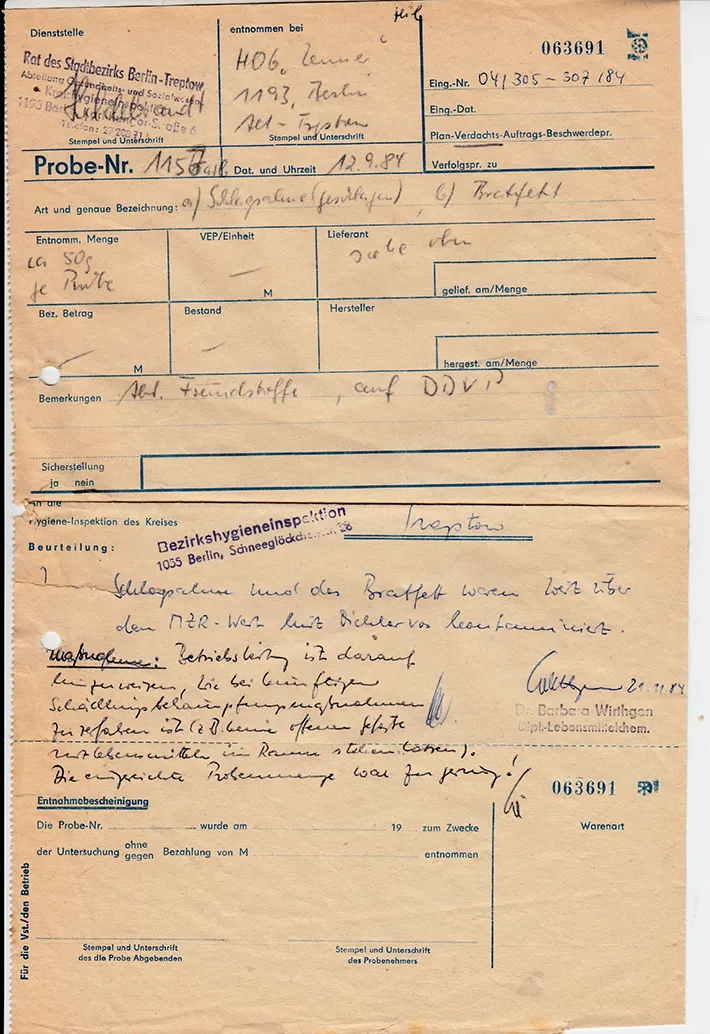 Dienststelle
entnommen bei
063691
Rat des Stadtbezirks Berlin-Treptow
Abteilung Gesundheits- und Sozialwesen
Kreishygieneinspektion
1193 Berlin
Stempel und Unterschrift
HOG „Zenner“
1193, Berlin
Alt-Treptow
Stempel und Unterschrift
Eing.-Nr. 04/305-307/84
Eing.-Dat.
Plan-Verdachts-Auftrags-Beschwerdepr.
Verfolgspr. zu
Probe-Nr. 1157 a+b Dat. und Uhrzeit 12.9.84
Art und genaue Bezeichnung: a) Schlagsahne (geschlagen), b) Bratfett
Entnomm. Menge
VEP/Einheit
Lieferant
ca 50g
je Probe
—
M
siehe oben
gelief. am/Menge
Bez. Betrag
Bestand
Hersteller
—
M
—
hergest. am/Menge
Bemerkungen Abt. Fremdstoffe, auf DDVP
Sicherstellung
ja nein
An die
Hygiene-Inspektion des Kreises Treptow
Bezirkshygieneinspektion
1055 Berlin,
Beurteilung:
Schlagsahne und das Bratfett waren weit über
den MZR-Wert mit Dichlorvos kontaminiert.
Maßnahme: Betriebsleitung ist darauf
hinzuweisen, wie bei künftigen
Schädlingsbekämpfungsmaßnahmen
zu verfahren ist (z.B. keine offenen Gefäße
mit Lebensmitteln im Raum stehen lassen).
Die eingereichte Probenmenge war zu gering!
21.11.84
Dr. Barbara Wirthgen
Dipl.-Lebensmittelchem.
063691
Entnahmebescheinigung
Die Probe-Nr. wurde am 19 zum Zwecke
Warenart
der Untersuchung ohne gegen Bezahlung von M entnommen
Für die Vst./den Betrieb
Stempel und Unterschrift
des die Probe Abgebenden
Stempel und Unterschrift
des Probenehmers